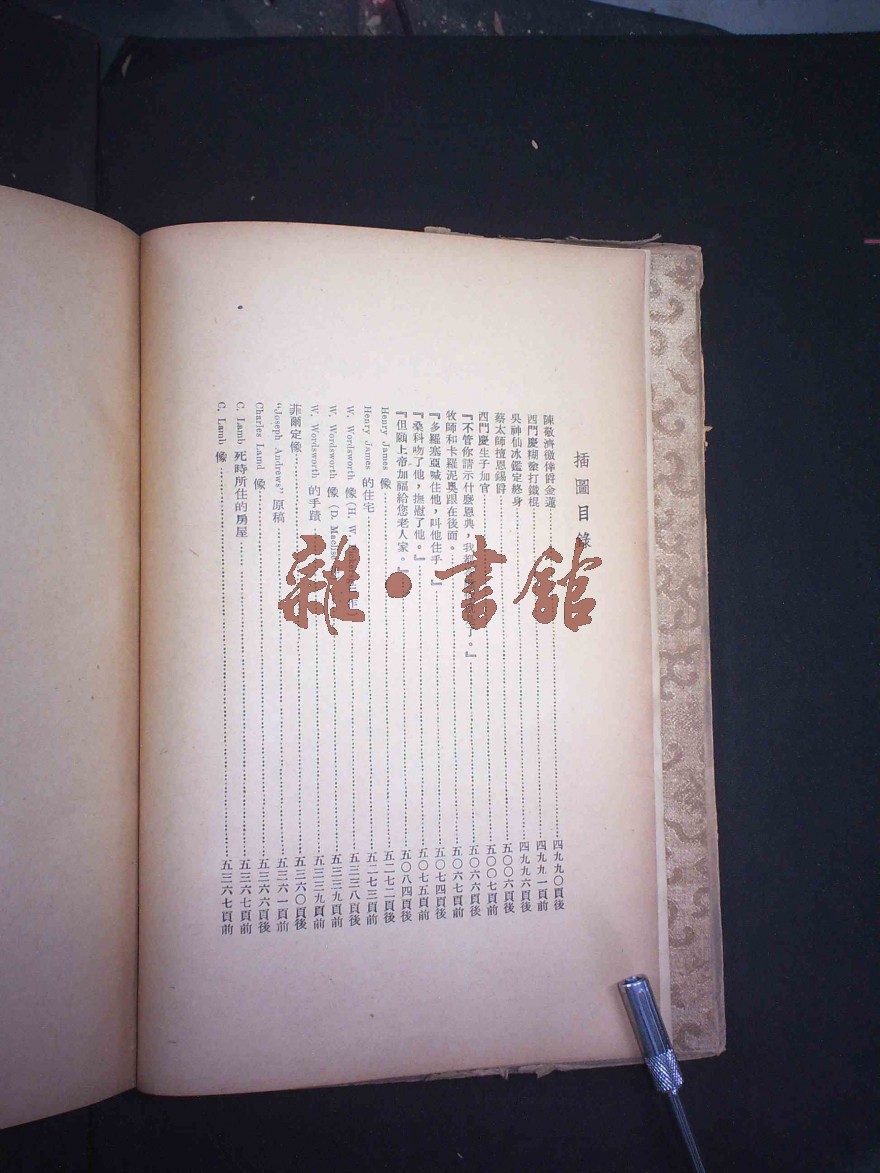 插圖目錄
陳敬濟徼倖得金蓮……四九九〇頁後
西門慶糊塗打鐵棍……四九九一頁前
吳神仙冰鑑定終身……四九九六頁後
蔡太師擅恩錫爵……五〇〇六頁後
西門慶生子加官……五〇〇七頁前
『不管你請示什麼恩典，我都……了。』……五〇六六頁後
牧師和卡羅泥奧跟在後面。……五〇六七頁前
『多羅塞亞喊住他，叫他住手。』……五〇七四頁後
『桑科吻了他，撫慰了他。』……五〇七五頁前
『但願上帝加福給您老人家。』……五〇八四頁後
Henry James 像……五二七二頁後
Henry James 的住宅……五二七三頁前
W. Wordsworth 像 (H. W. 作……五三三八頁後
W. Wordsworth 像 (D. Maclise……五三三九頁前
W. Wordsworth 的手蹟……五三三九頁前
菲爾定像……五三六〇頁後
"Joseph Andrews" 原稿……五三六一頁前
Charles Lamd 像……五三六六頁後
C. Lamb 死時所住的房屋……五三六七頁前
C. Lamb 像……五三六七頁前
雜·書館